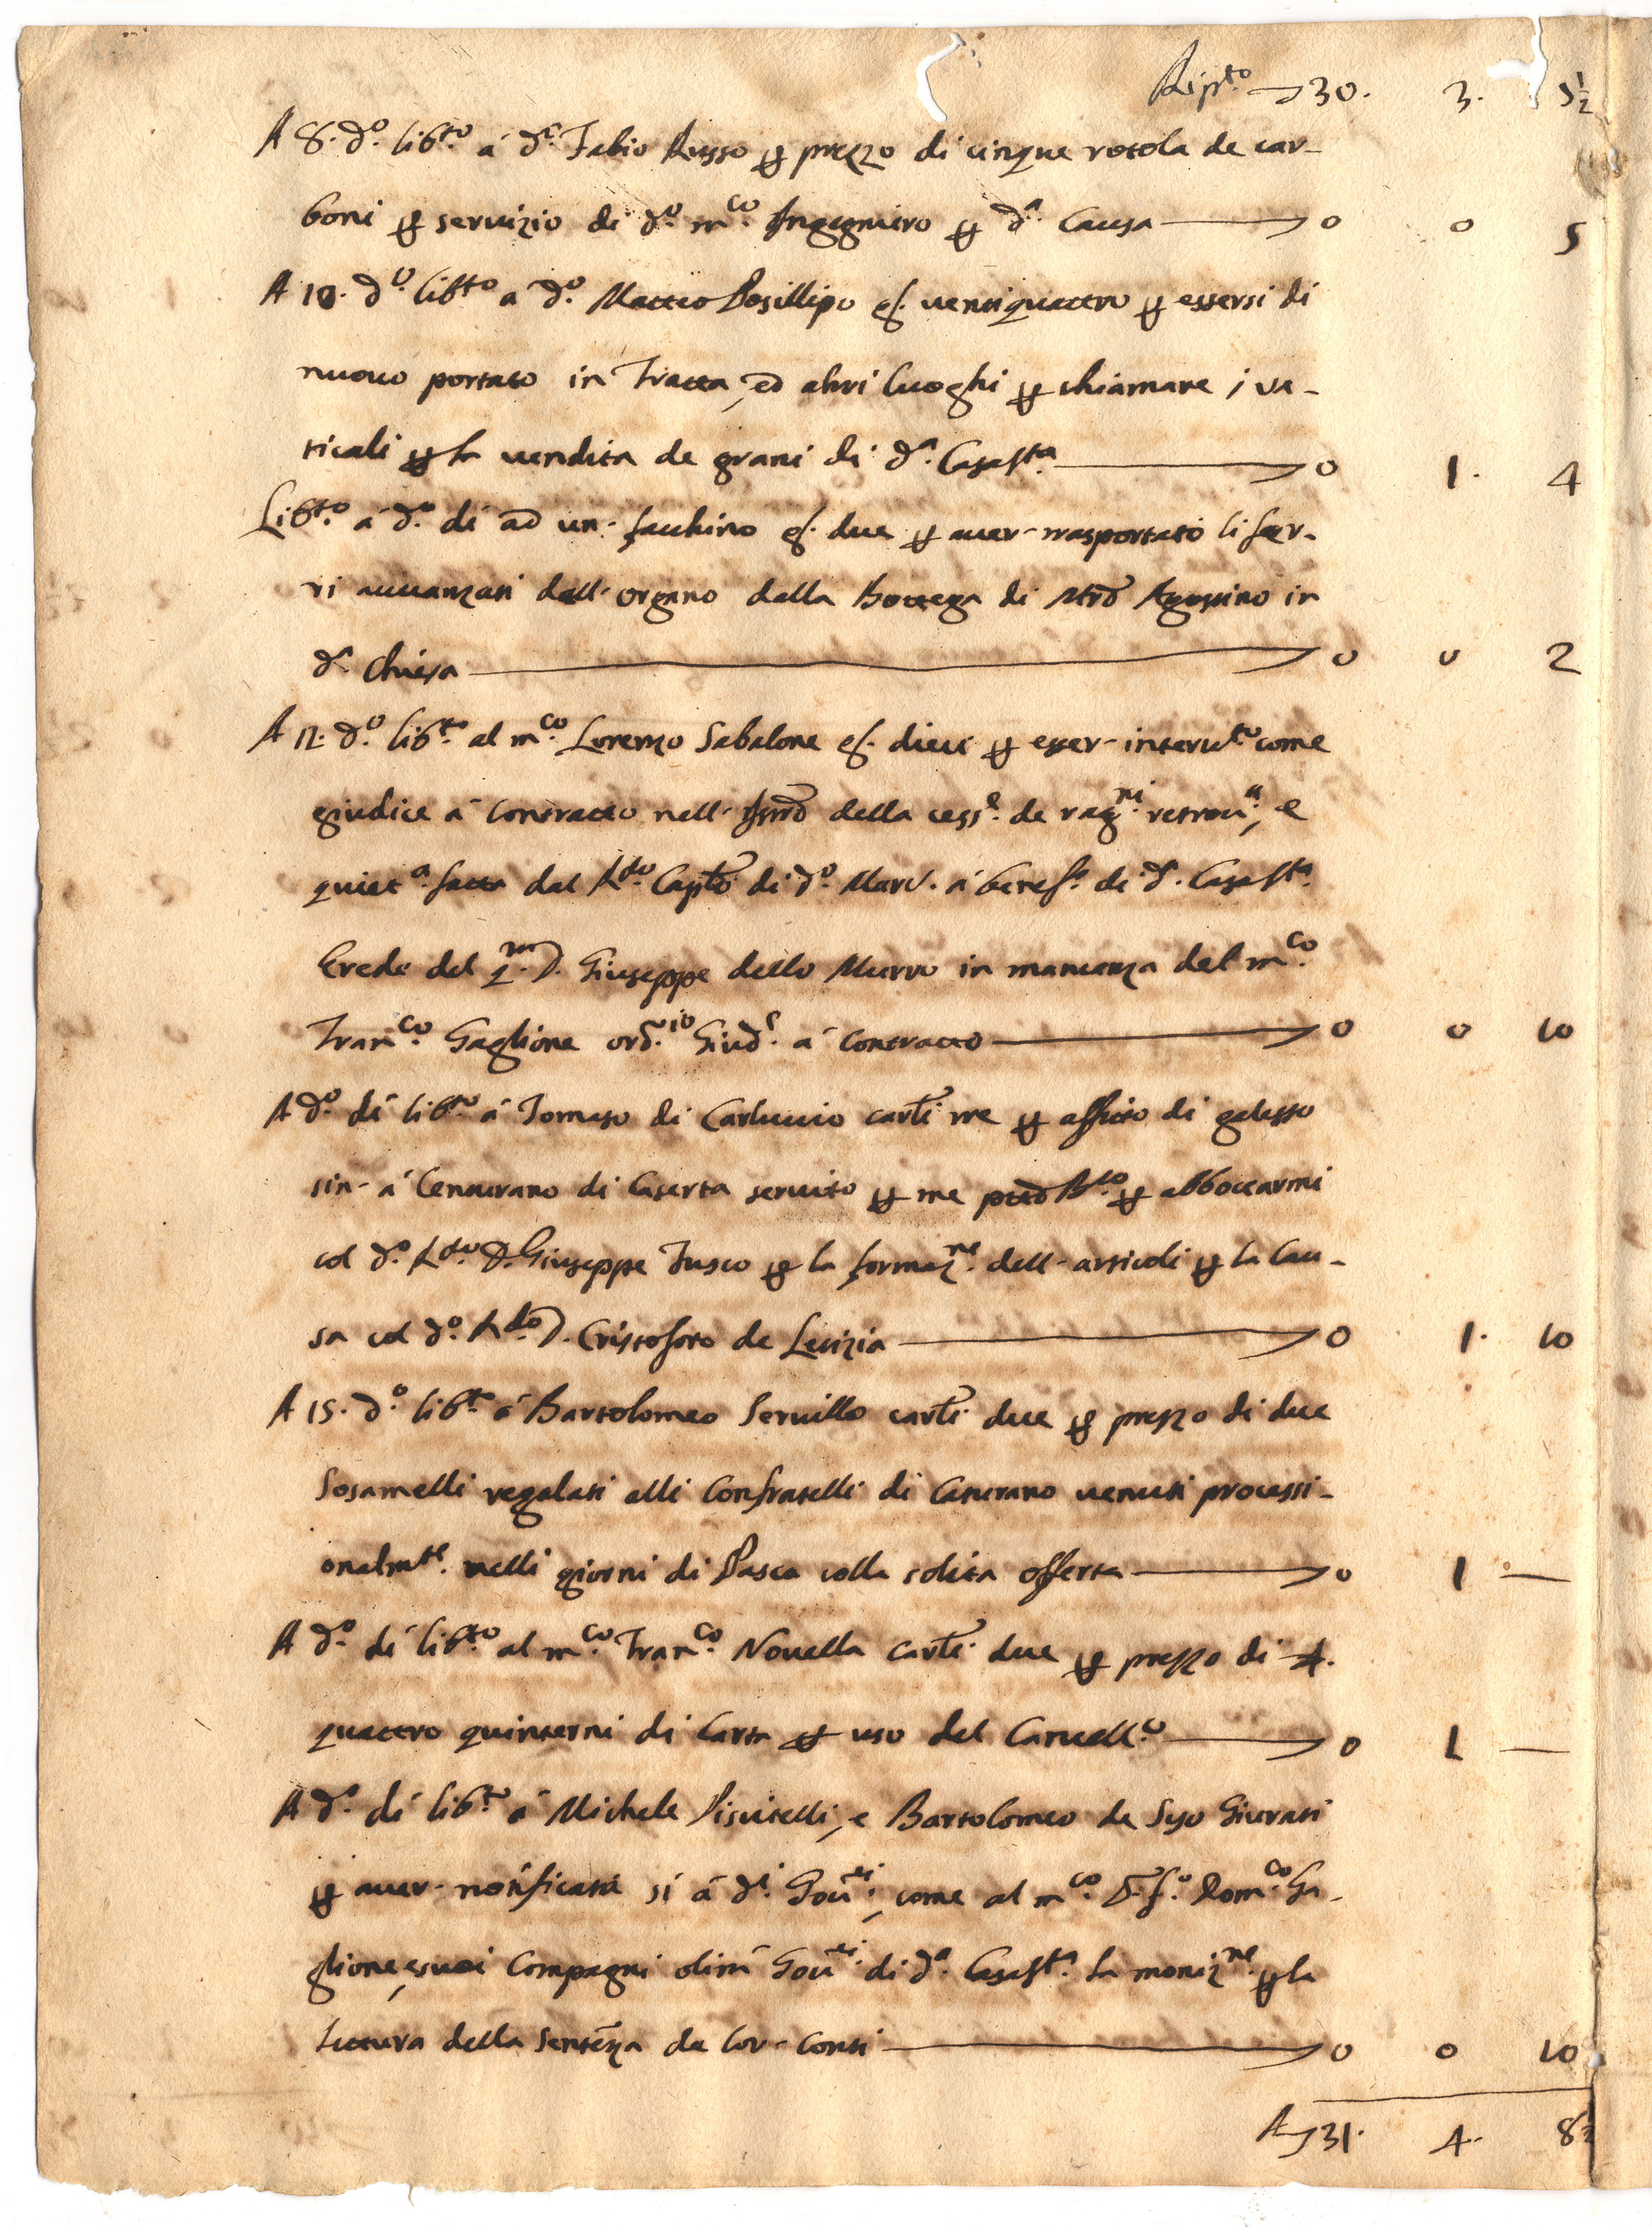 Rip.to 30. 3. 5½
A 8. d.o lib.to à d.o Fabio Russo p prezzo di cinque rotola de car-
boni p servizio di d.o m.co Ingegniero p d.a Causa 0 0 5
A 10. d.o lib.to a d.o Matteo Posillipo g.s ventiquattro p essersi di
nuovo portato in Fratta, ed altri luoghi p chiamare i va-
ticali p la vendita de grani di d.a CasaS.ta 0 1. 4
Lib.to a d.o dì ad un facchino g.s due p aver trasportato li fer-
ri avvanzati dall' organo dalla Bottega di Mro Agostino in
d.a Chiesa 0 0 2
A 12. d.o lib.to al m.co Lorenzo Sabalone g.s dieci p esser intervto come
giudice à contratto nell' Istro della cess.e de rag.ni retrov.a, e
quiet.a fatta dal R.do Caplo di d.o Marc. à benef.o di d. CasaS.ta
Erede del q.m D. Giuseppe dello Murro in mancanza del m.co
Fran.co Gaglione ord.io Giud.e à contratto 0 0 10
A d.o dì lib.to à Tomaso di Carluccio carli tre p affitto di galesso
sin à Centurano di Caserta servito p me p abboccarmi
col d.o R.do D. Giuseppe Fusco p la formaz.ne dell' articoli p la Cau-
sa col d.o R.do D. Cristofaro de Letizia 0 1. 10
A 15. d.o lib.to à Bartolomeo Servillo carli due p prezzo di due
Sosamelli regalati alli Confratelli di Casurano venuti processi-
onalm.te nelli giorni di Pasca colla solita offerta 0 1 —
A d.o dì lib.to al m.co Fran.co Novella carli due p prezzo di 4.
quattro quinterni di Carta p uso del Cancell.o 0 1 —
A d.o dì lib.to à Michele Piscitelli, e Bartolomeo de Syo Giurati
p aver notificata sì à d.i Gov.ri, come al m.co Dom.co Ga-
glione, e suoi Compagni olim Gov.ri di d.a CasaS.ta la moniz.ne p la
lettura della Sentenza de lor conti 0 0 10
A 31. 4. 8½